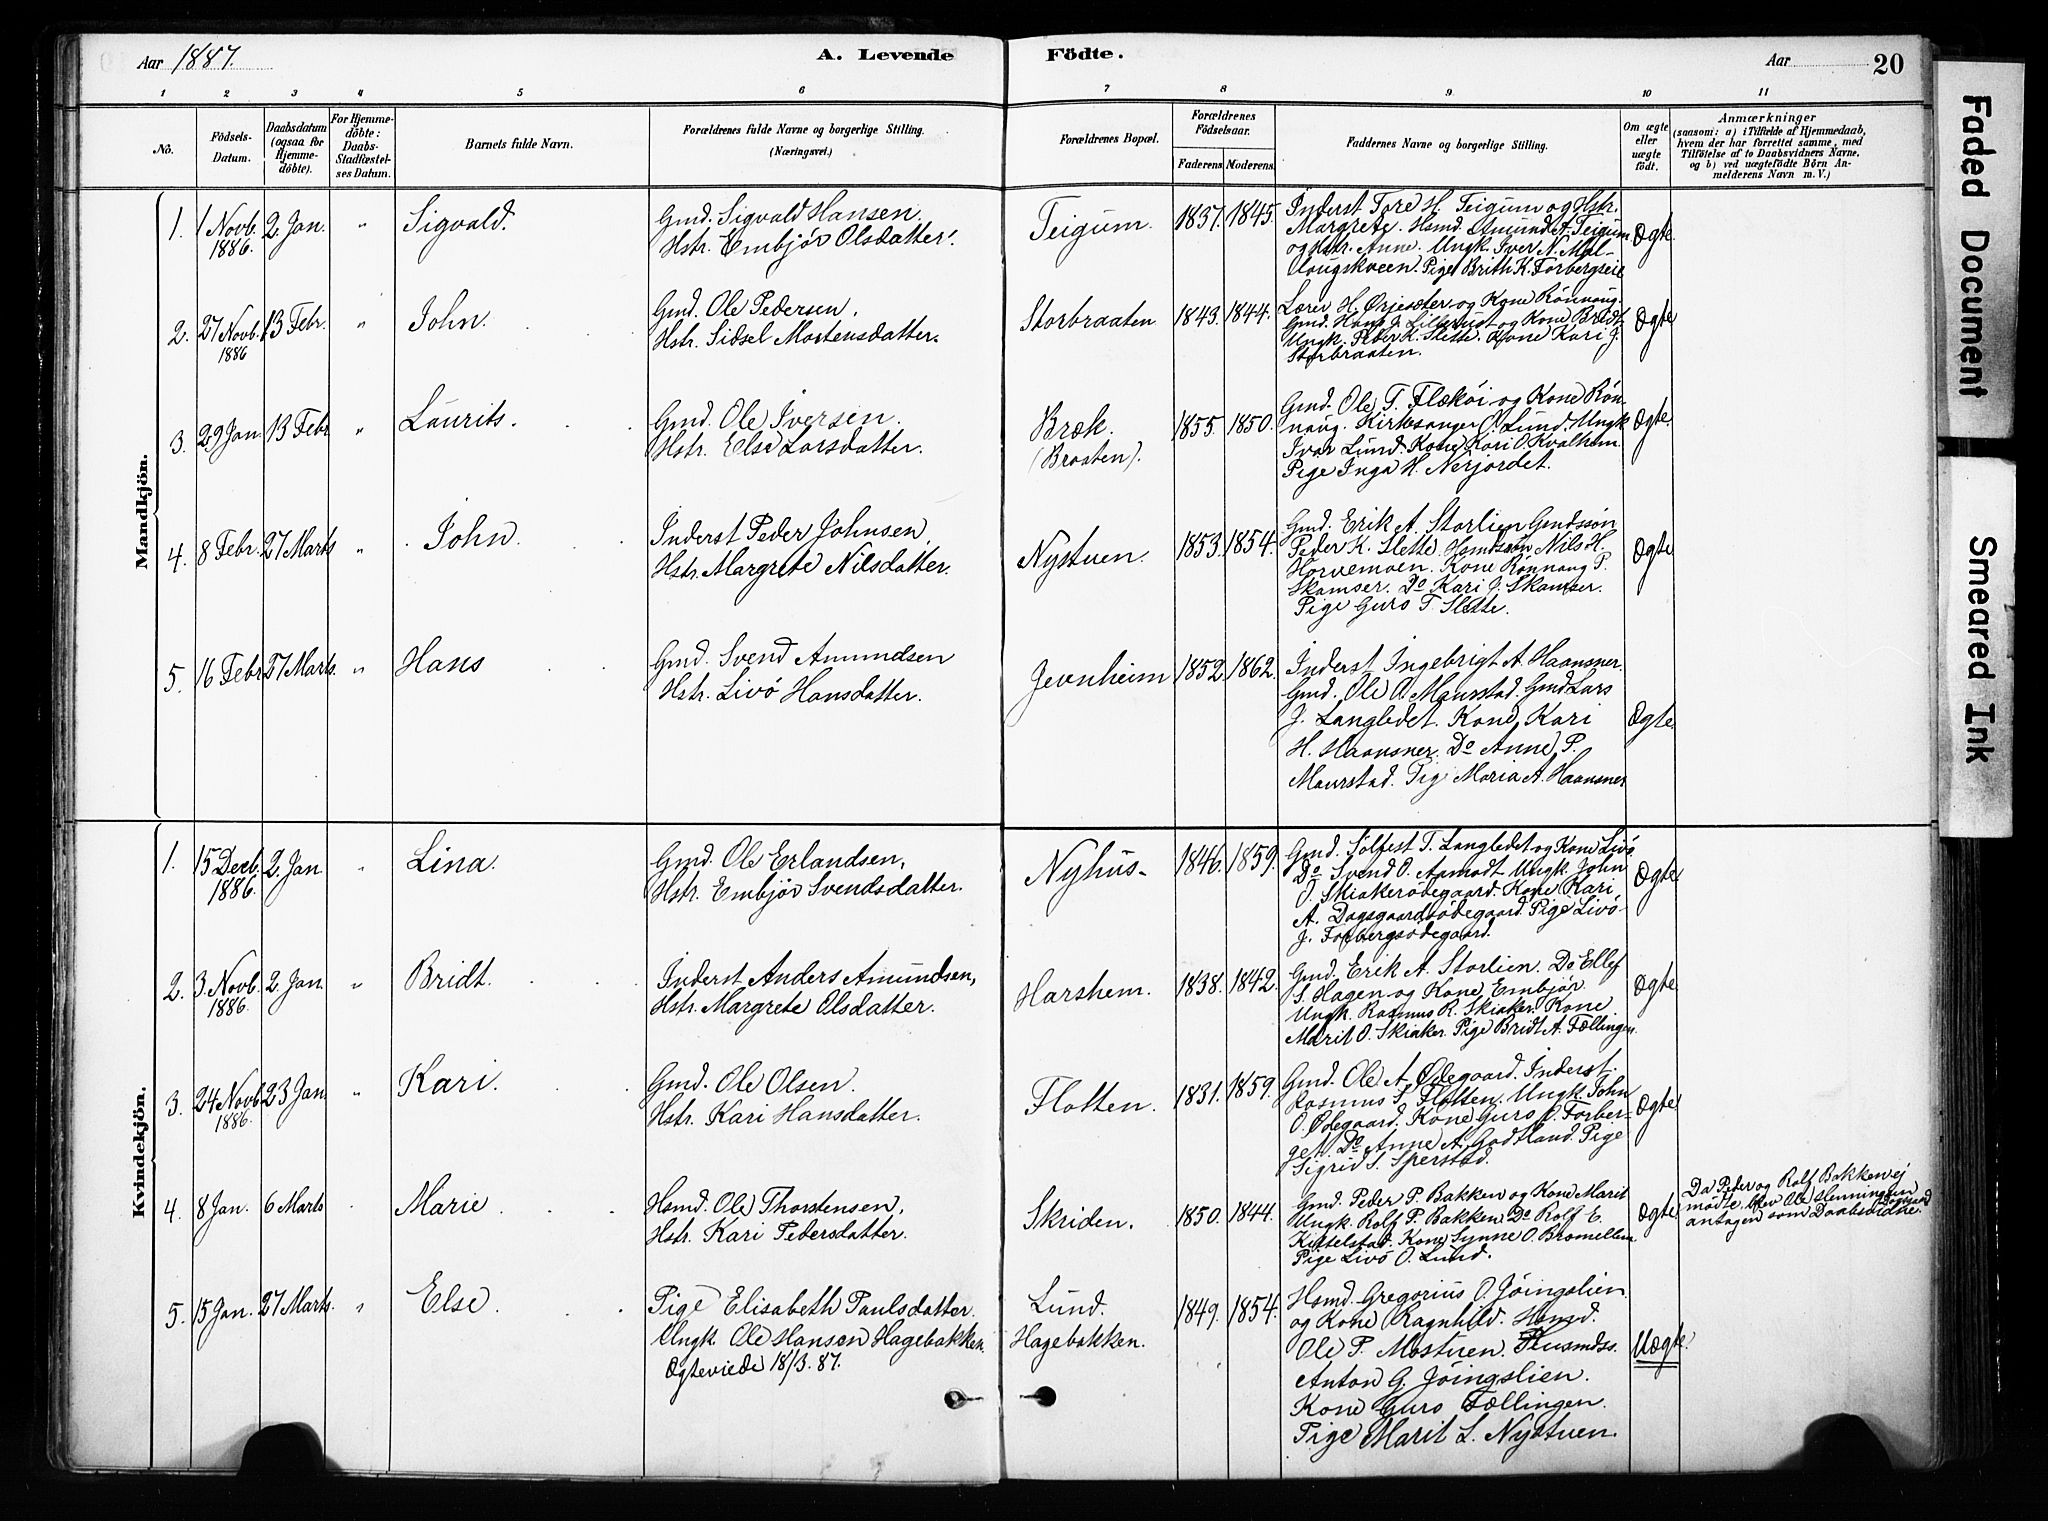 Aar 1887.
A. Levende
Födte.
Aar
20
1 2 3 4 5 6 7 8 9 10 11
No.
Födsels-
Datum.
Daabsdatum
(ogsaa for
Hjemme-
döbte).
For Hjemme-
döbte:
Daabs-
Stadfæstel-
ses Datum.
Barnets fulde Navn.
Forældrenes fulde Navne og borgerlige Stilling.
(Næringsvei.)
Forældrenes Bopæl.
Forældrenes
Födselsaar.
Faderens. Moderens.
Faddernes Navne og borgerlige Stilling.
Om ægte
eller
uægte
födt.
Anmærkninger
(saasom: a) i Tilfælde af Hjemmedaab,
hvem der har forrettet samme, med
Tilföielse af to Daabsvidners Navne,
og b) ved uægtefödte Börn An-
melderens Navn m. V.)
Mandkjön.
1. 1 Novb. 1886. 2 Jan. " Sigvald.
Gmd. Sigvald Hansen.
Hstr. Embjör Olsdatter.
Teigum. 1837. 1845.
Inderst Tore H. Teigum og Hstr.
Margrete. Hsmd. Amund A. Teigum
og Hstr. Anne. Ungk. Iver N. Mal-
laugskveen. Pige Brith K. Forbergseie
Ægte.
2. 27 Novb. 1886 13 Febr. " John.
Gmd. Ole Pedersen,
Hstr. Sidsel Mortensdatter.
Storbraaten 1843. 1844.
Lærer H. Ørjesæter og Kone Rönnaug.
Gmd. Hans J. Lillerust og Kone Bridt.
Ungk. Peder K. Slette. Kone Kari J.
Storbraaten.
Ægte
3. 29 Jan. 13 Febr " Laurits.
Gmd. Ole Iversen.
Hstr. Else Larsdatter.
Bræk.
(Braaten).
1855. 1850.
Gmd. Ole T. Flæköi og Kone Rön-
naug. Kirkesanger O. Lund. Ungk
Ivar Lund. Kone Kari O. Kvalhem.
Pige Inga H. Nerjordet.
Ægte.
4. 8 Febr. 27 Marts " John.
Inderst Peder Johnsen,
Hstr. Margrete Nilsdatter.
Nystuen. 1853. 1854.
Gmd. Erik A. Storlien Gmdssön
Peder K. Slette. Hsmdssön Nils H.
Horvemoen. Kone Rönnaug P.
Skamser. Do Kari J. Skamser.
Pige Guro T. Slette.
Ægte
5. 16 Febr 27 Marts. " Hans
Gmd. Svend Amundsen
Hstr. Livö Hansdatter.
Jevnheim 1852. 1862.
Inderst Ingebrigt A. Haansner.
Gmd. Ole O. Maurstad. Gmd Lars
J. Langledet. Kone Kari
H. Haansner. Do Anne P.
Maurstad. Pige Maria A. Haansner
Ægte.
Kvindekjön.
1. 15 Decb. 1886. 2. Jan. " Lina.
Gmd. Ole Erlandsen,
Hstr. Embjör Svendsdatter.
Nyhus- 1846. 1859.
Gmd. Sölfest T. Langledet og Kone Livö.
Do Svend O. Aamodt. Ungk. John
O. Skiakerödegaard. Kone Kari
A. Dagsgaardsödegaard. Pige Livö
J. Forbergsödegaard.
Ægte
2. 3 Novb. 1886. 2. Jan. " Bridt.
Inderst Anders Amundsen,
Hstr. Margrete Olsdatter.
Harshem. 1838. 1842.
Gmd. Erik A. Storlien. Do Ellef
S. Hagen og Kone Embjör
Ungk. Rasmus R. Skiaker. Kone
Marit O. Skiaker. Pige Bridt A. Fællingen.
Ægte.
3. 24 Novb. 1886. 23 Jan. " Kari.
Gmd. Ole Olsen.
Hstr. Kari Hansdatter.
Flotten. 1831. 1859.
Gmd. Ole A. Ødegaard. Inderst.
Rasmus S. Flotten. Ungk. John
O. Ødegaard. Kone Guro O. Forber-
get. Do Anne A. Godtland. Pige
Sigrid S. Sperstad.
Ægte
4. 8 Jan. 6 Marts Marie
Hsmd. Ole Thorstensen,
Hstr. Kari Pedersdatter.
Skriden. 1850. 1844.
Gmd. Peder P. Bakken og Kone Marit
Ungk. Rolf P. Bakken. Do Rolf E.
Kittelstad. Kone Synne O. Bromellem
Pige Livö O. Lund.
Ægte
Da Peder og Rolf Bakken ej
mödte, blev Ole Henningsen Dagsgaard
antagen som Daabsvidne.
5. 15 Jan. 27 Marts. " Else.
Pige Elisabeth Paulsdatter.
Ungk. Ole Hansen Hagebakken.
Ægteviede 18/3. 87.
Lund.
Hagebakken.
1849. 1854.
Hsmd. Gregorius O. Jöingslien
og Kone Ragnhild. Hsmd.
Ole P. Mostuen. Husmdss.
Anton G. Jöingslien.
Kone Guro Fællingen.
Pige Marit L. Nystuen.
Uægte.
Faded Document
Smeared Ink